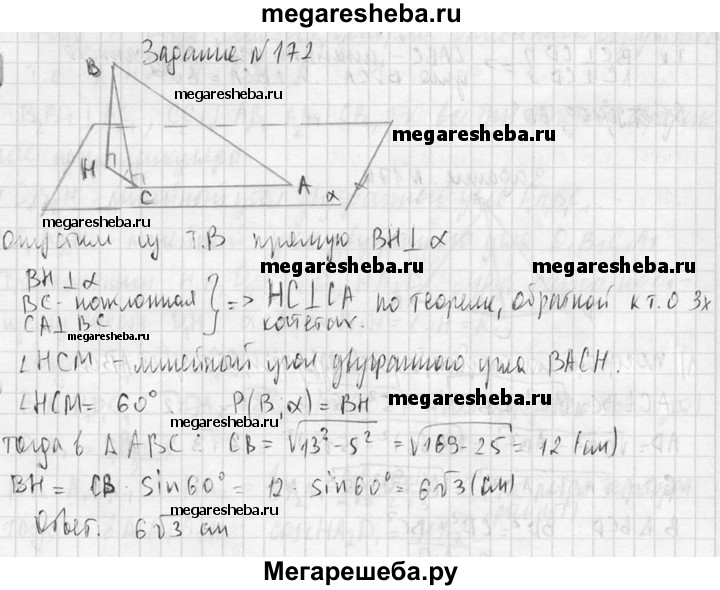 megaresheba.ru
Задание N 172
B
megaresheba.ru
megaresheba.ru
H
C
A
α
megaresheba.ru
Опустим из т.B прямую BH⊥α
BH⊥α
BC - наклонная } => HC⊥CA по теореме, обратной к т.о 3х
CA⊥BC
megaresheba.ru
megaresheba.ru
∠HCM - линейный угол двугранного угла BACH.
∠HCM = 60°. P(B;α) = BH
megaresheba.ru
megaresheba.ru
тогда в ΔABC: CB = √13²-5² = √169-25 = 12 (см)
BH = CB · sin60° = 12 · sin60° = 6√3 (см)
megaresheba.ru
Ответ. 6√3 см
Мегарешеба.ру